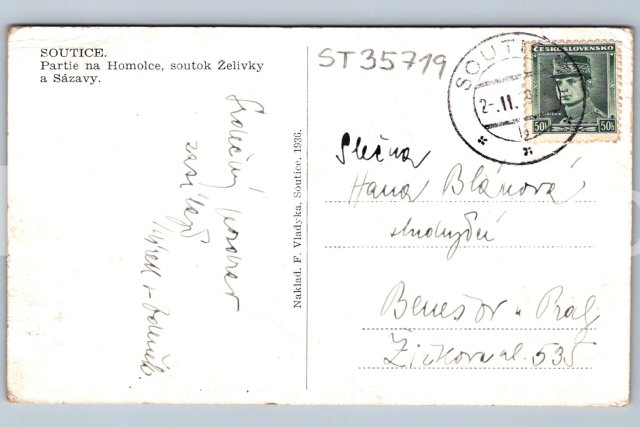 SOUTICE.
Partie na Homolce, soutok Želivky
a Sázavy.
ST35719
SOUTI
2-.II.
b
ČESKOSLOVENSKO
50h 50h
Srdečný pozdrav
zasílají
Zdeněk
Naklad. F. Vladyka, Soutice, 1936.
Slečna
Hana Blánová
Benešov u Prahy
Žižkova ul. 535